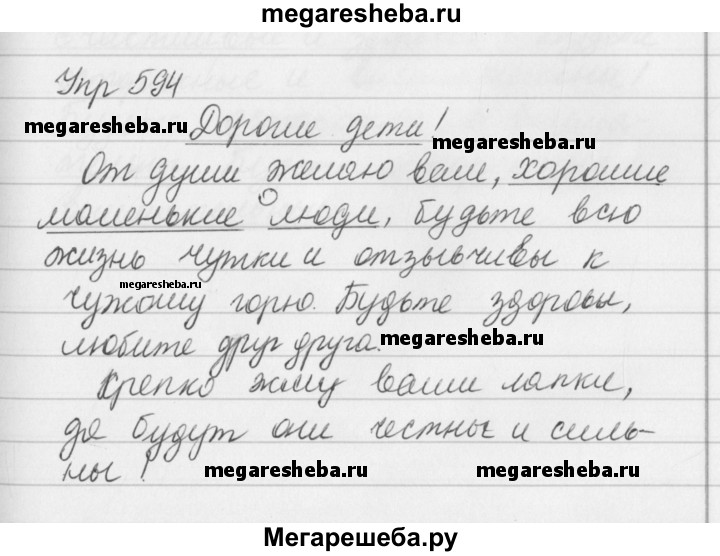 megaresheba.ru
Упр 594
megaresheba.ru Дорогие дети! megaresheba.ru
От души желаю вам, хорошие
маленькие люди, будьте всю
жизнь чутки и отзывчивы к
megaresheba.ru
чужому горю. Будьте здоровы,
любите друг друга. megaresheba.ru
Крепко жму ваши лапки,
да будут они честны и силь-
ны! megaresheba.ru megaresheba.ru
Мегарешеба.ру